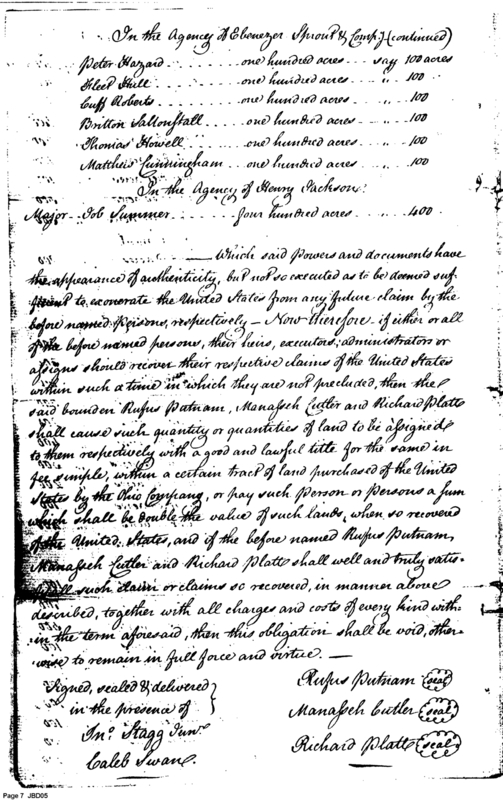 In the Agency of Ebenezer Sprout & Comp.y (continued)
Peter Hazard ... one hundred acres ... say 100 acres
Fleet Hull ... one hundred acres ... " .. 100
Cuff Roberts ... one hundred acres ... " .. 100
Britton Sallonstall ... one hundred acres ... " .. 100
Thomas Howell ... one hundred acres ... " .. 100
Matthew Cunningham ... one hundred acres ... " .. 100
In the Agency of Henry Jackson.
Major Job Sumner ... four hundred acres ... " .. 400
Which said Powers and documents have
the appearance of authenticity, but not so executed as to be deemed suf-
ficient to exonerate the United States from any future claim by the
before named Persons, respectively — Now therefore if either or all
of the before named persons, their heirs, executors, administrators or
assigns should recover their respective claims of the United States
within such a time in which they are not precluded, then the
said bounden Rufus Putnam, Manasseh Cutler and Richard Platt
shall cause such quantity or quantities of land to be assigned
to them respectively with a good and lawful title for the same in
fee simple, within a certain tract of land purchased of the United
States by the Ohio Company, or pay such Person or Persons a sum
which shall be double the value of such lands, when so recovered
of the United States, and if the before named Rufus Putnam,
Manasseh Cutler and Richard Platt shall well and truly satis-
such claim or claims so recovered, in manner above
described, together with all charges and costs of every kind with-
in the term aforesaid, then this obligation shall be void, other-
wise to remain in full force and virtue. —
Signed, sealed & delivered
in the presence of
Jn.o Stagg Jun.r
Caleb Swan.
Rufus Putnam (seal)
Manasseh Cutler (seal)
Richard Platt (seal)
Page 7 JBD05